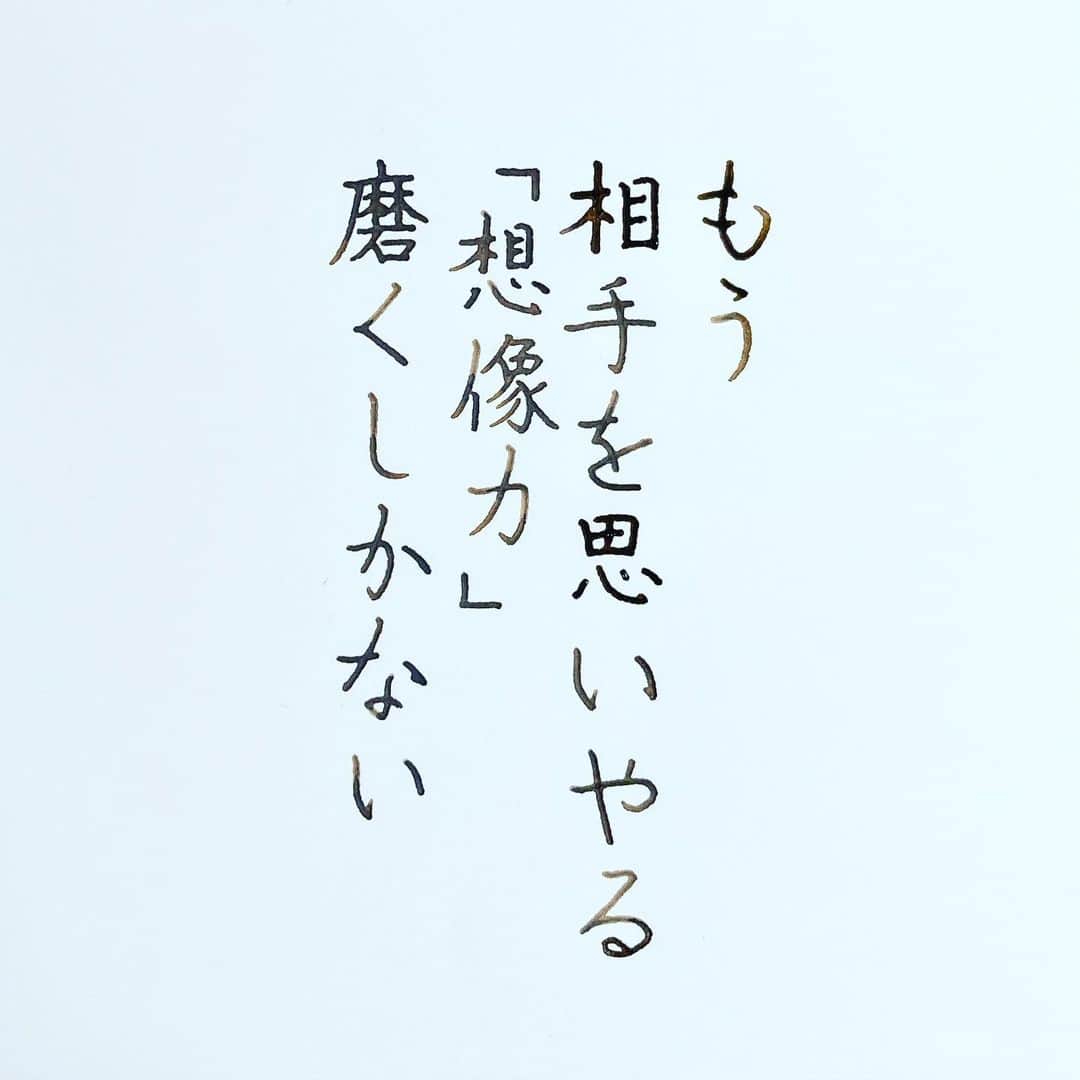 もう
相手を思いやる
「想像力」
磨くしかない